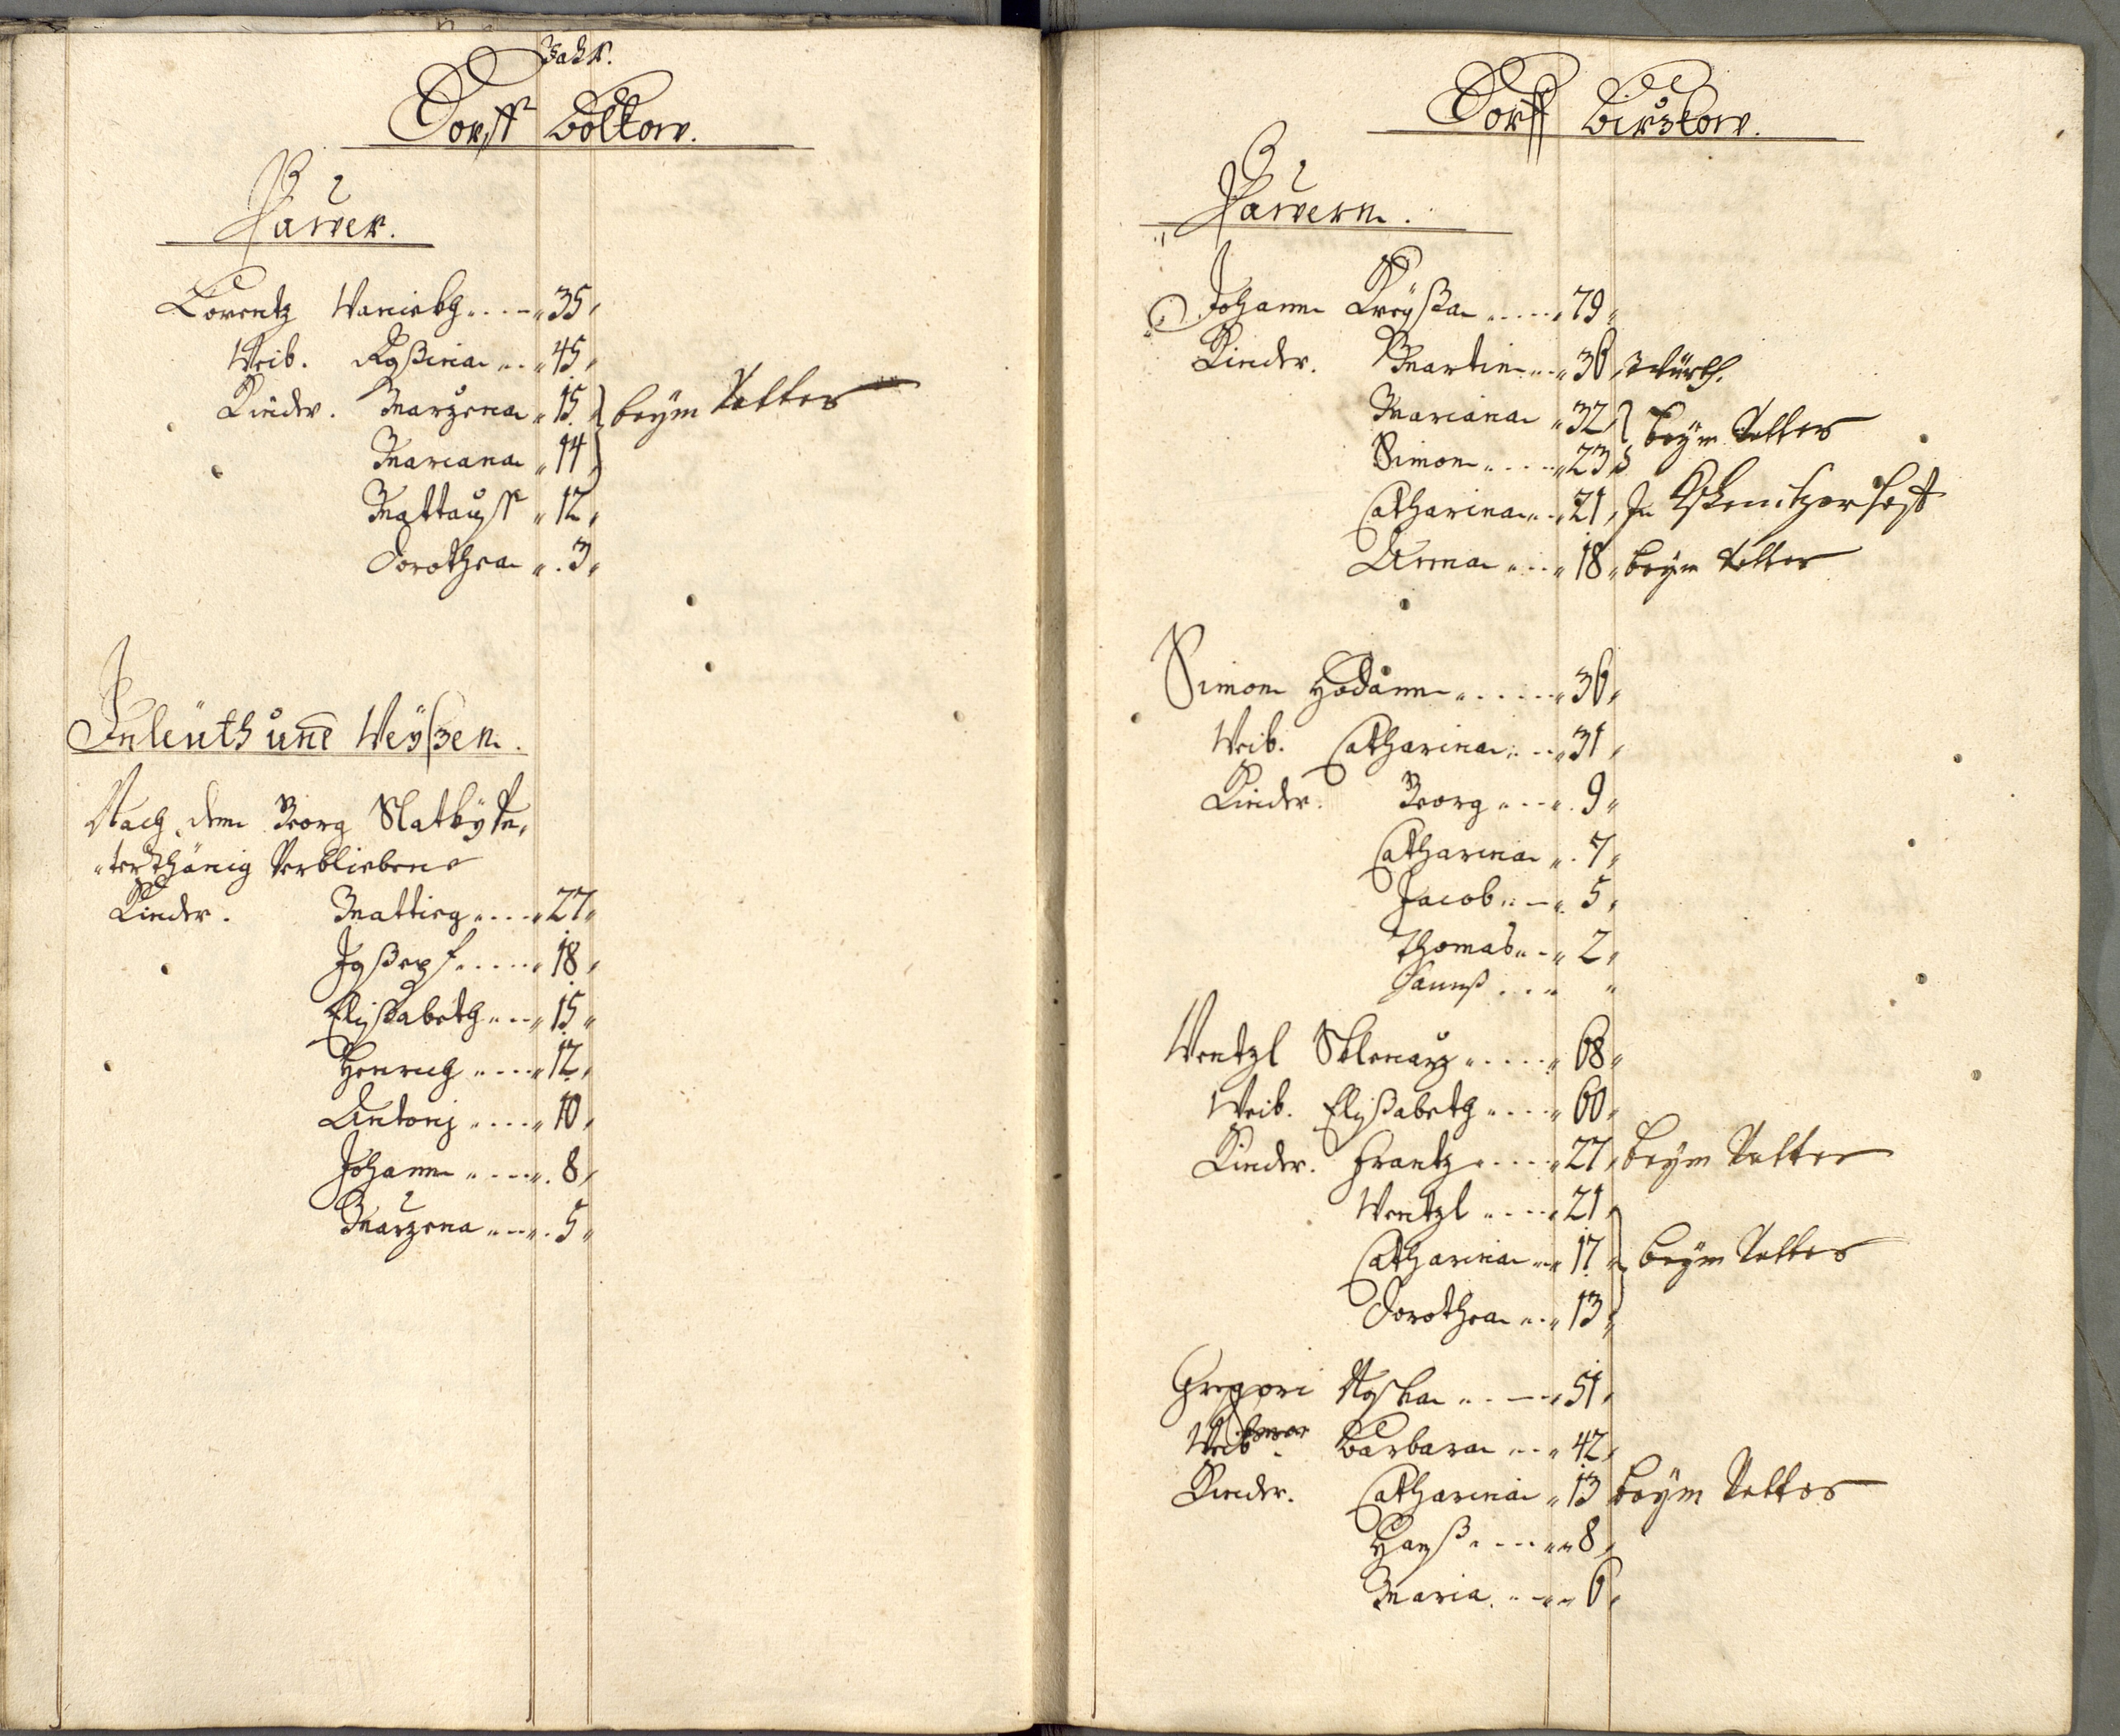 Jahr.
Dorff Boltow.
Pawer.
Lorentz Waniekh 35
Weib. Rosina 45
Kinder. Marzena 15 beym Vatter
Mariana 14
Mattauß 12
Dorothea 3
Inleuth und Weyßen.
Nach dem Georg Slatky Un-
terthänig Verbliebene
Kinder. Mattieg 27
Joßepf 18
Elißabeth 15
Henrich 12
Antonj 10
Johann 8
Marzena 5
Dorff Birzkow.
Pawern.
Johann Kreyßa 79
Kinder. Martin 36 Würth.
Mariana 32 beym Vatter
Simon 23
Catharina 21 In
Anna 18 beym Vatter
Simon Hodann 36
Weib. Catharina 31
Kinder. Georg 9
Catharina 7
Jacob 5
Thomas 2
Hannß
Wentzl Sklenarz 68
Weib. Elißabeth 60
Kinder. Frantz 27 beym Vatter
Wentzl 21
Catharina 17 beym Vatter
Dorothea 13
Gregori 51
Weib Barbara 42
Kinder. Catharina 13 beym Vatter
Hanß 8
Maria 6